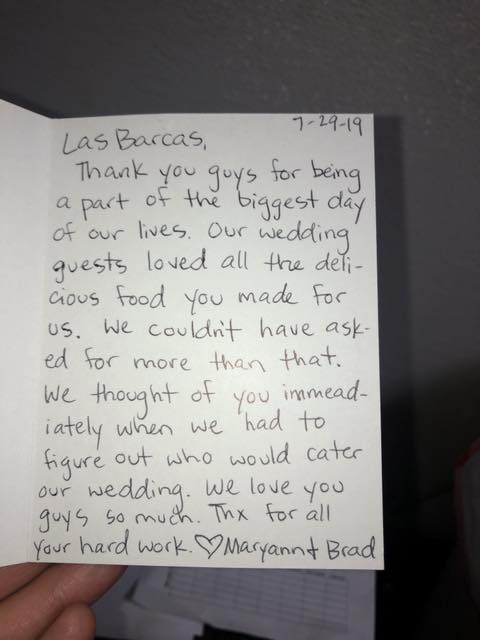 7-29-19
Las Barcas,
Thank you guys for being
a part of the biggest day
of our lives. Our wedding
guests loved all the deli-
cious food you made for
us. We couldn't have ask-
ed for more than that.
We thought of you immead-
iately when we had to
figure out who would cater
our wedding. We love you
guys so much. Thx for all
your hard work. ♡Maryann+ Brad